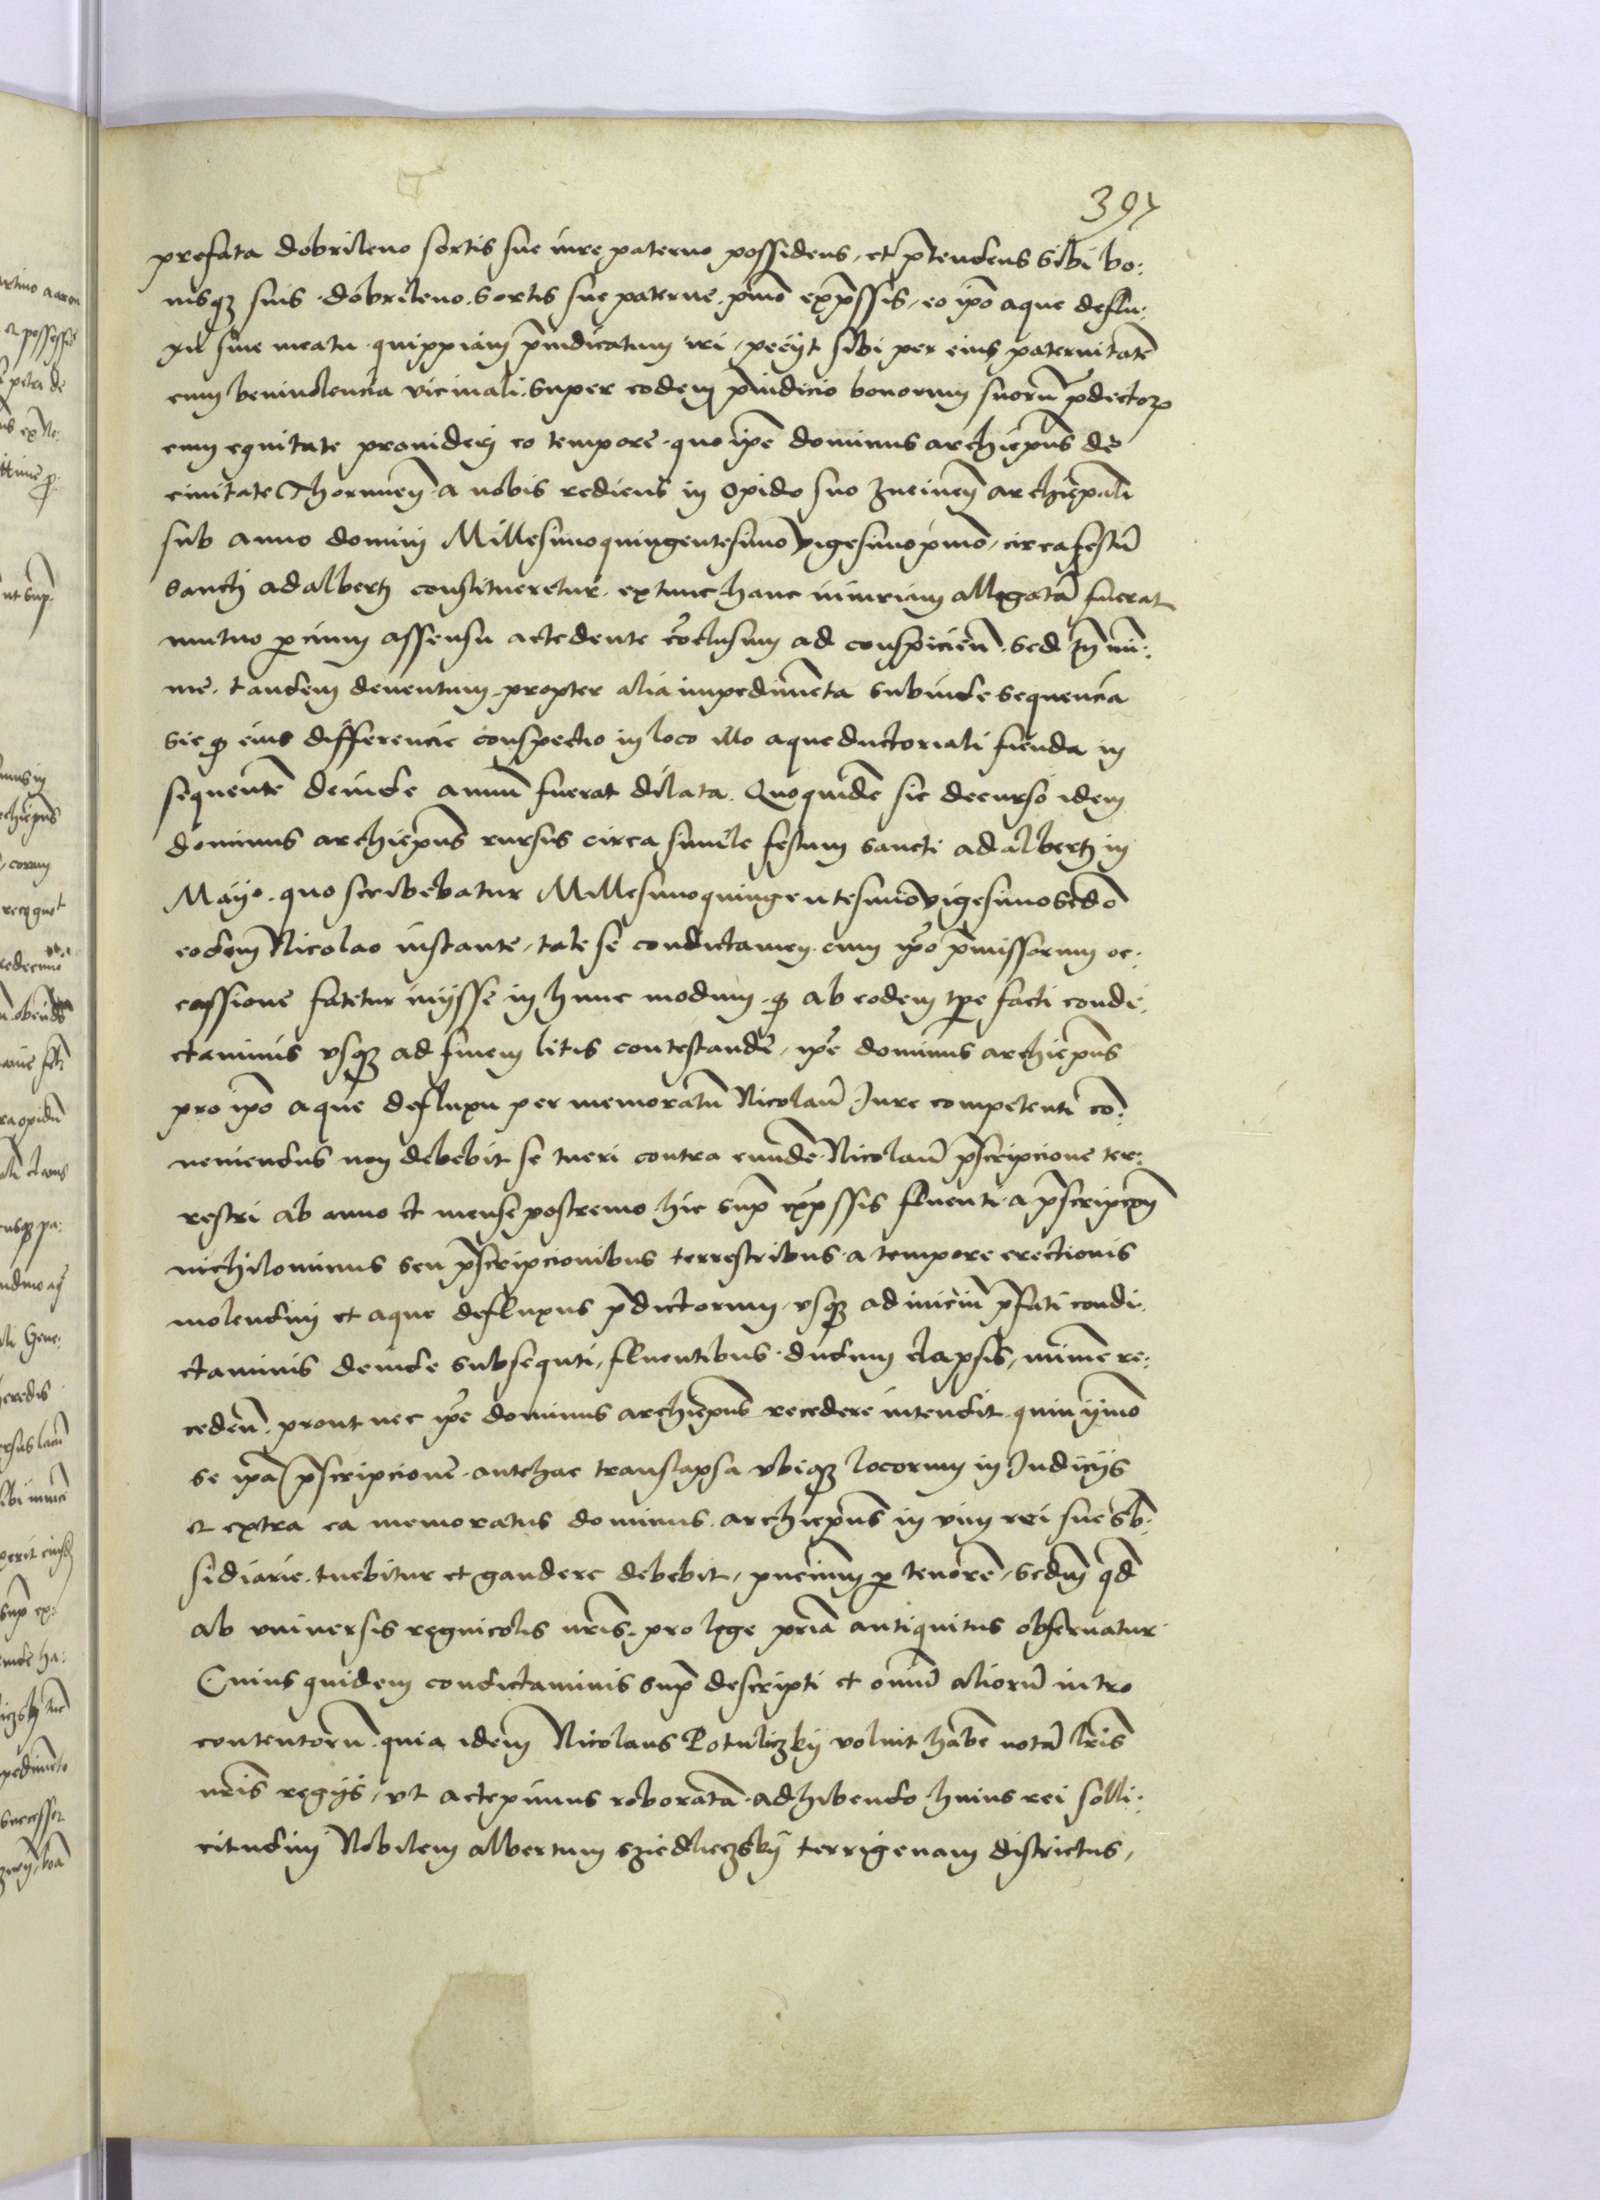 397
prefata dobrileno sortis sue iure paterno possidens, et p̄tendens sibi bo:
nisqȝ suis dobrileno sortis sue paterne p̄mo exp̄ssis, eo ip̄o aque deflu:
xu sine meatu quippiam p̄iudicatum iri, peciit sibi per eius paternitatē
cum benivolencia vicinali super eodem p̄iudicio bonorum suorū p̄dictoꝝ
cum equitate provideri eo tempore quo ip̄e dominus archiep̄us de
civitate Thorunen̄ a nobis rediens in opido suo Zneinen̄ archiep̄ali
sub anno domini Millesimoquingentesimo vigesimop̄mo, circa festū
Sancti adalberti constitueretur. extunc hanc iniuriam allegatā fuerat
mutuo parcium assensu accedente cōclusum ad conspiciēn. Sed tn̄ mi:
nime tandem deventum propter alia impedimēta subinde sequencia
sic ꝙ eius differencie conspectio in loco illo aqueductoriali fienda in
sequentē deinde annū fuerat dilata. Quoquidē sic decurso idem
dominus archiep̄us rursus circa simile festum sancti adalberti in
Mayo. quo scribebatur Millesimoquingentesimovigesimosc̄do
eodem Nicolao instante, tale se condictamen cum ip̄o p̄missorum oc:
cassione fatetur iniisse in hunc modum. ꝙ ab eodem tp̄e facti condi:
ctaminis usqȝ ad finem litis contestande, ip̄e dominus archiep̄us
pro ip̄o aque defluxu per memoratū Nicolaū Iure competenti cō:
veniendus non debebit se tueri contra eundē Nicolaū p̄scripcione ter:
restri ab anno et mense postremo hic sup̄ exp̄ssis fluenti. a p̄scripcōn̄
nichilominus seu p̄scripcionibus terrestribus a tempore erectionis
molendini et aque defluxus p̄dictorum usqȝ ad iniciū p̄fati condi:
ctaminis deinde subsequti, fluentibus dudum elapsis, minime re:
cedēn. prout nec ip̄e dominus archiep̄us recedere intendit quin ymmo
se ip̄a p̄scripcione antehac translapsa ubiqȝ locorum in Iudiciis
et extra ea memoratus dominus archiep̄us in vim rei sue sb̄:
sidiarie tuebitur et gaudere debebit, p̄ncium p tenorē, sc̄dm qd̄
ab universis regnicolis nr̄is pro lege pr̄ia antiquitus observatur
Cuius quidem condictaminis sup̄ descripti et omniū aliorū intro
contentorū quia idem Nicolaus Potuliczky voluit habē notā lr̄is
nr̄is regiis, ut accepimus roboratā adhibendo huius rei solli:
citudini Nobilem albertum Sziedliczsky terrigenam districtus,